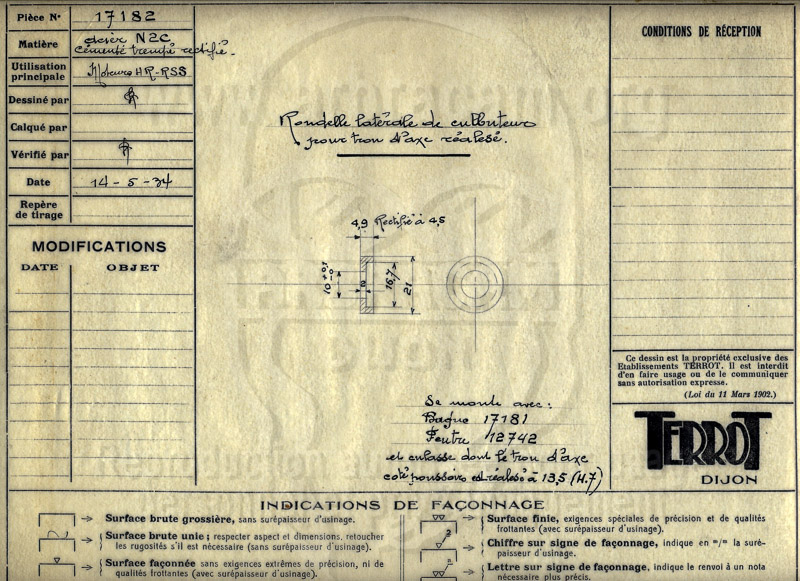 Pièce Nº 17182
Matière acier N2C
cémenté trempé rectifié.
Utilisation
principale Moteurs HR-RSS
Dessiné par
Calqué par
Vérifié par
Date 14-5-34
Repère
de tirage
MODIFICATIONS
DATE OBJET
Rondelle latérale de culbuteurs
pour trou d'axe réalesé.
4,9 Rectifié à 4,5
10 +0,1 -0
16,7
21
Se monte avec:
Bague 17181
Feutre 12742
et culasse dont le trou d'axe
coté poussoirs est réalesé à 13,5 (H.7)
CONDITIONS DE RÉCEPTION
Ce dessin est la propriété exclusive des
Etablissements TERROT. Il est interdit
d'en faire usage ou de le communiquer
sans autorisation expresse.
(Loi du 11 Mars 1902.)
TERROT
DIJON
INDICATIONS DE FAÇONNAGE
Surface brute grossière, sans surépaisseur d'usinage.
Surface brute unie; respecter aspect et dimensions, retoucher
les rugosités s'il est nécessaire (sans surépaisseur d'usinage).
Surface façonnée sans exigences extrêmes de précision, ni de
qualités frottantes (avec surépaisseur d'usinage).
Surface finie, exigences spéciales de précision et de qualités
frottantes (avec surépaisseur d'usinage).
Chiffre sur signe de façonnage, indique en m/m la suré-
paisseur d'usinage.
Lettre sur signe de façonnage, indique le renvoi à un nota
nécessaire plus précis.